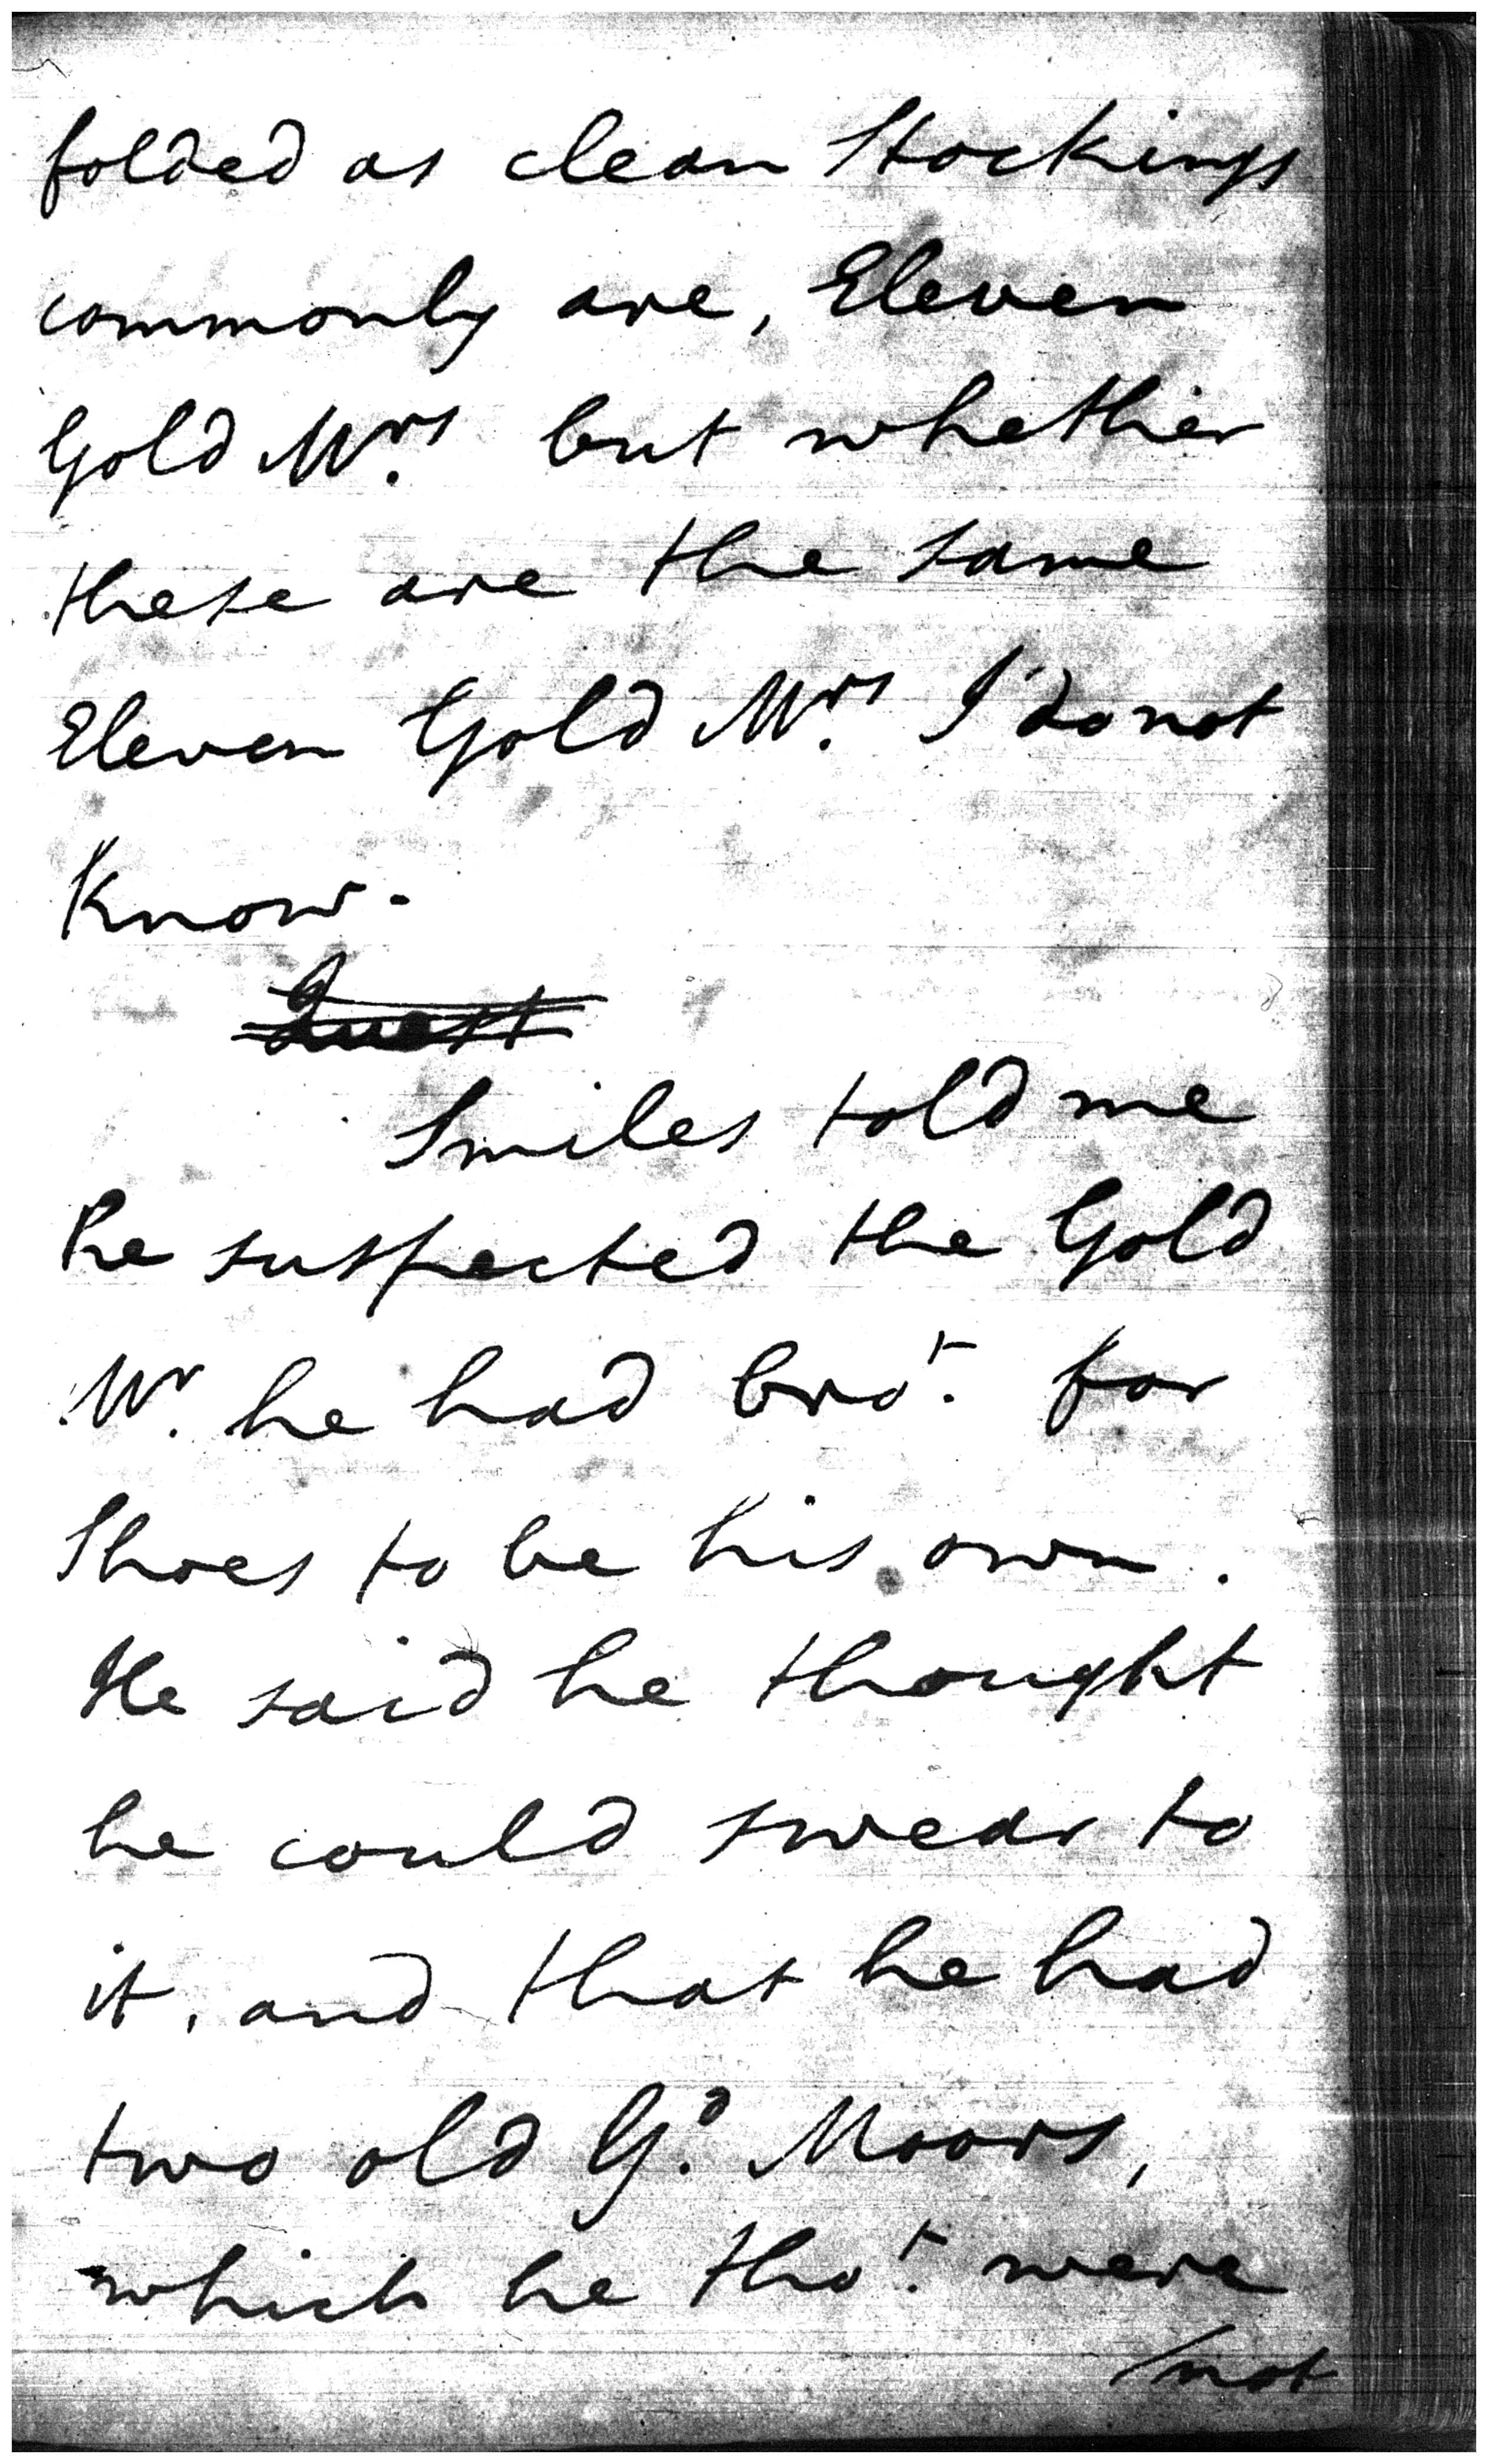 folded as clean Stockings
commonly are, Eleven
Gold Mrs. but whether
these are the same
Eleven Gold Mrs. I do not
Know.
Quest
Smiles told me
he suspected the Gold
Mr. he had brot. for
Shoes to be his own.
He said he thought
he could swear to
it, and that he had
two old Gd. Moors,
which he thot. were
/not